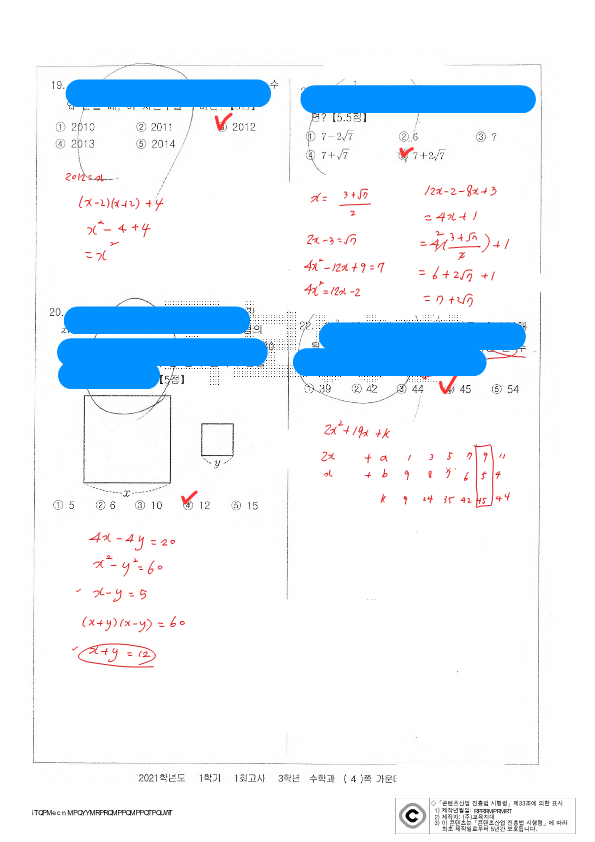 19.
수
① 2010 ② 2011 ③ 2012
④ 2013 ⑤ 2014
2012 = x
(x-2)(x+2)+4
x² - 4 + 4
= x²
면? 【5.5점】
① 7-2√7 ② 6 ③ 7
④ 7+√7 ⑤ 7+2√7
x = (3+√7)/2
2x-3=√7
4x²-12x+9=7
4x²=12x-2
12x-2-8x+3
= 4x+1
= 4((3+√7)/2)+1
= 6+2√7+1
= 7+2√7
20.
【5점】
x
y
① 5 ② 6 ③ 10 ④ 12 ⑤ 15
4x-4y=20
x²-y²=60
x-y=5
(x+y)(x-y)=60
x+y=12
22.
① 39 ② 42 ③ 44 ④ 45 ⑤ 54
2x²+19x+k
2x + a 1 3 5 7 9 11
x + b 9 8 7 6 5 4
k 9 24 35 42 45 44
2021학년도 1학기 1회고사 3학년 수학과 ( 4 )쪽 가운데
◇「콘텐츠산업 진흥법 시행령」제33조에 의한 표시
1) 제작년월일:
2) 제작자: (주)교육지대
3) 이 콘텐츠는「콘텐츠산업 진흥법 시행령」에 따라
최초 제작일로부터 5년간 보호됩니다.